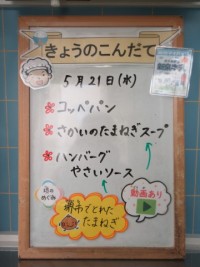 きょうのこんだて
5月21日(水)
コッペパン
さかいのたまねぎスープ
ハンバーグ
やさいソース
堺の
めぐみ
堺市でとれた
たまねぎ
動画あり